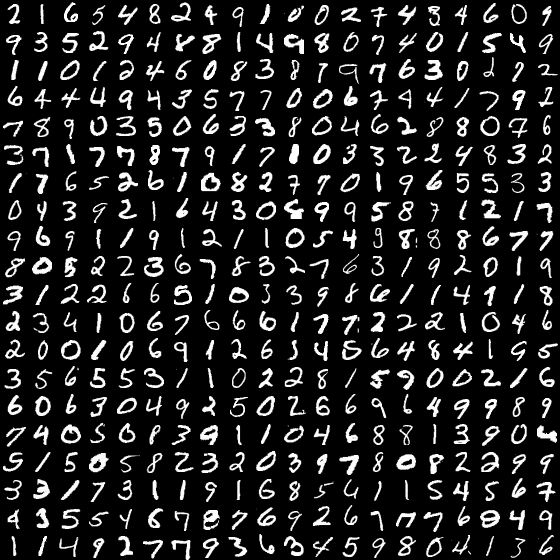 2 1 6 5 4 8 2 4 9 1 0 0 2 7 4 3 4 6 0 9
9 3 5 2 9 4 8 8 1 4 9 8 0 7 4 0 1 5 4 9
1 1 0 1 2 4 6 0 8 3 8 7 9 7 6 3 0 2 7 2
6 4 4 4 9 4 3 5 7 7 0 0 6 7 4 4 1 7 9 2
7 8 9 0 3 5 0 6 3 3 8 0 4 6 2 8 8 0 7 6
3 7 1 7 7 8 7 9 1 7 1 0 3 3 2 2 4 8 3 2
1 7 6 5 2 6 1 0 8 2 7 7 0 1 9 6 5 5 3 3
0 4 3 9 2 1 6 4 3 0 9 9 5 8 7 1 2 1 7
9 6 9 1 1 9 1 2 1 1 0 5 4 9 8 8 8 6 7 7
8 0 5 2 2 3 6 7 8 3 2 7 6 3 1 9 2 0 1 9
3 1 2 2 6 6 5 1 0 3 3 9 8 6 1 1 4 1 1 8
2 3 4 1 0 6 7 6 6 6 1 7 7 2 2 2 1 0 4 6
2 0 0 1 0 6 9 1 2 6 3 4 5 6 4 8 4 1 9 5
3 5 6 5 5 3 1 1 0 2 2 8 1 5 9 0 0 2 1 6
6 0 6 3 0 4 9 2 5 0 2 6 6 9 6 4 9 9 8 9
7 4 0 5 0 8 3 9 1 1 0 4 6 8 8 1 3 9 0 6
5 1 5 0 5 8 2 3 2 0 3 9 7 8 0 8 2 2 9 9
3 3 1 7 3 1 1 9 1 6 8 5 4 1 1 5 4 5 6 7
4 3 5 5 4 6 7 8 7 6 9 2 6 7 7 7 6 8 4 9
1 1 4 9 2 7 7 9 3 6 3 4 5 9 8 0 4 1 3 6